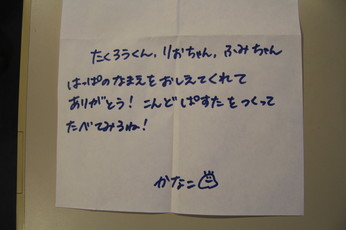 たくろうくん、りおちゃん、ふみちゃん
はっぱのなまえをおしえてくれて
ありがとう！こんどぱすたをつくって
たべてみるね！
かなこ